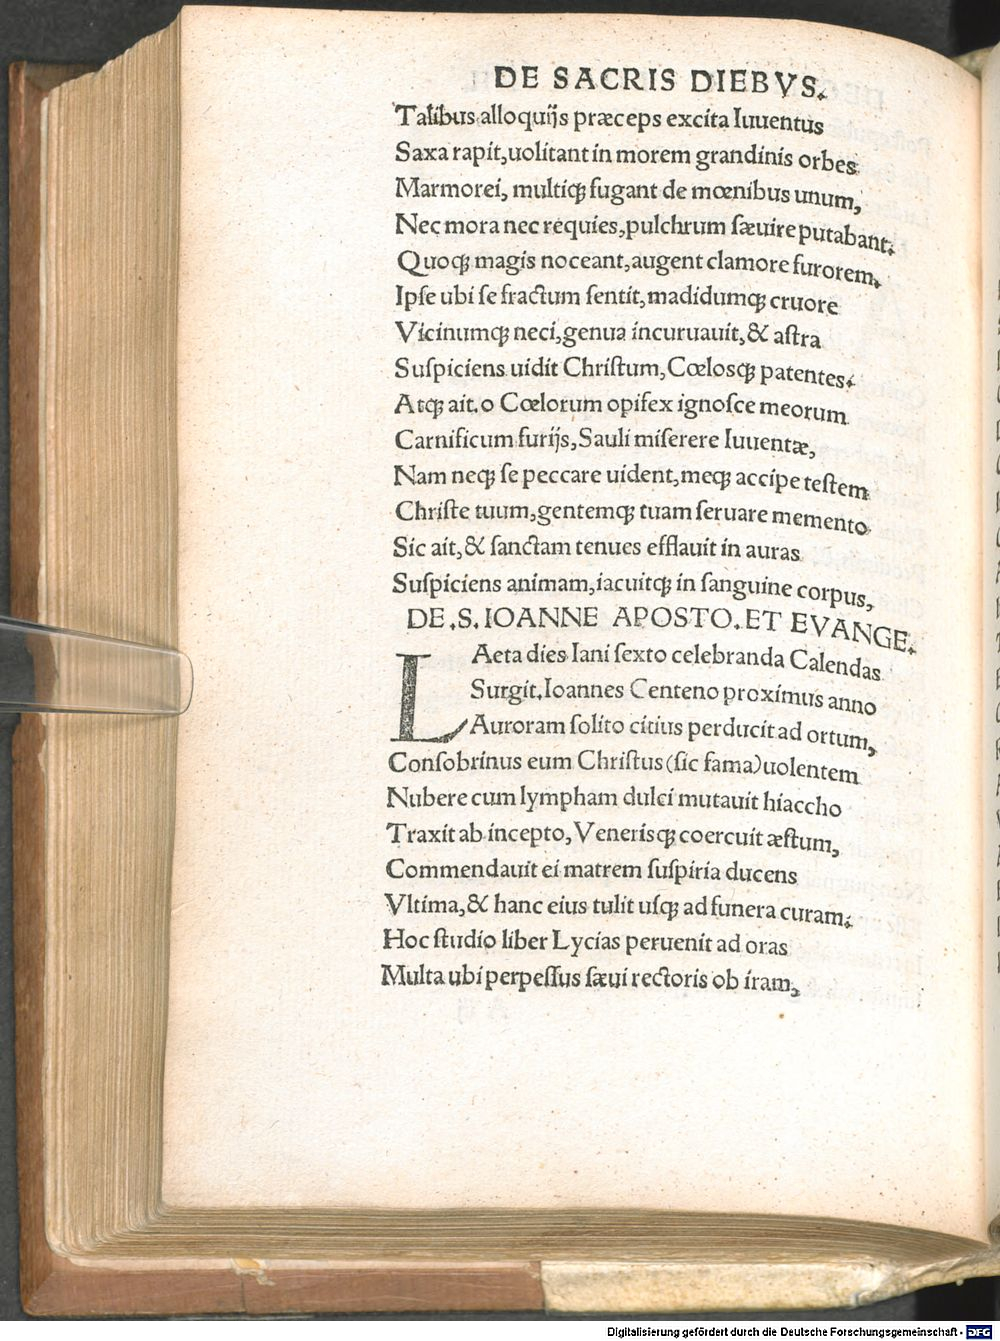 DE SACRIS DIEBVS.
Talibus alloquijs præceps excita Iuuentus
Saxa rapit,uolitant in morem grandinis orbes
Marmorei, multiqꝫ fugant de mœnibus unum,
Nec mora nec requies,pulchrum ſæuire putabant.
Quoqꝫ magis noceant,augent clamore furorem.
Ipſe ubi ſe fractum ſentit,madidumqꝫ cruore
Vicinumqꝫ neci,genua incuruauit,& aſtra
Suſpiciens uidit Chriſtum,Cœlosqꝫ patentes.
Atqꝫ ait.o Cœlorum opifex ignoſce meorum
Carnificum furijs,Sauli miſerere Iuuentæ,
Nam neqꝫ ſe peccare uident,meqꝫ accipe teſtem
Chriſte tuum,gentemqꝫ tuam ſeruare memento
Sic ait,& ſanctam tenues efflauit in auras
Suſpiciens animam,iacuitqꝫ in ſanguine corpus,
DE.S.IOANNE APOSTO.ET EVANGE.
LAeta dies Iani ſexto celebranda Calendas
Surgit.Ioannes Centeno proximus anno
Auroram ſolito citius perducit ad ortum,
Conſobrinus eum Chriſtus(ſic fama)uolentem
Nubere cum lympham dulci mutauit hiaccho
Traxit ab incepto,Venerisqꝫ coercuit æſtum,
Commendauit ei matrem ſuſpiria ducens
Vltima,& hanc eius tulit uſqꝫ ad funera curam.
Hoc ſtudio liber Lycias peruenit ad oras
Multa ubi perpeſſus ſæui rectoris ob iram,
Digitalisierung gefördert durch die Deutsche Forschungsgemeinschaft - DFG